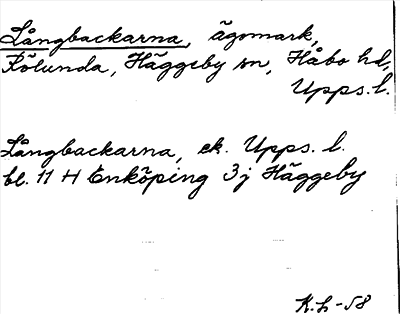 Långbackarna, ägomark,
Rölunda, Häggeby sn, Håbo hd,
Upps. l.
Långbackarna, ek. Upps. l.
bl. 11 H Enköping 3j Häggeby
K.L-58